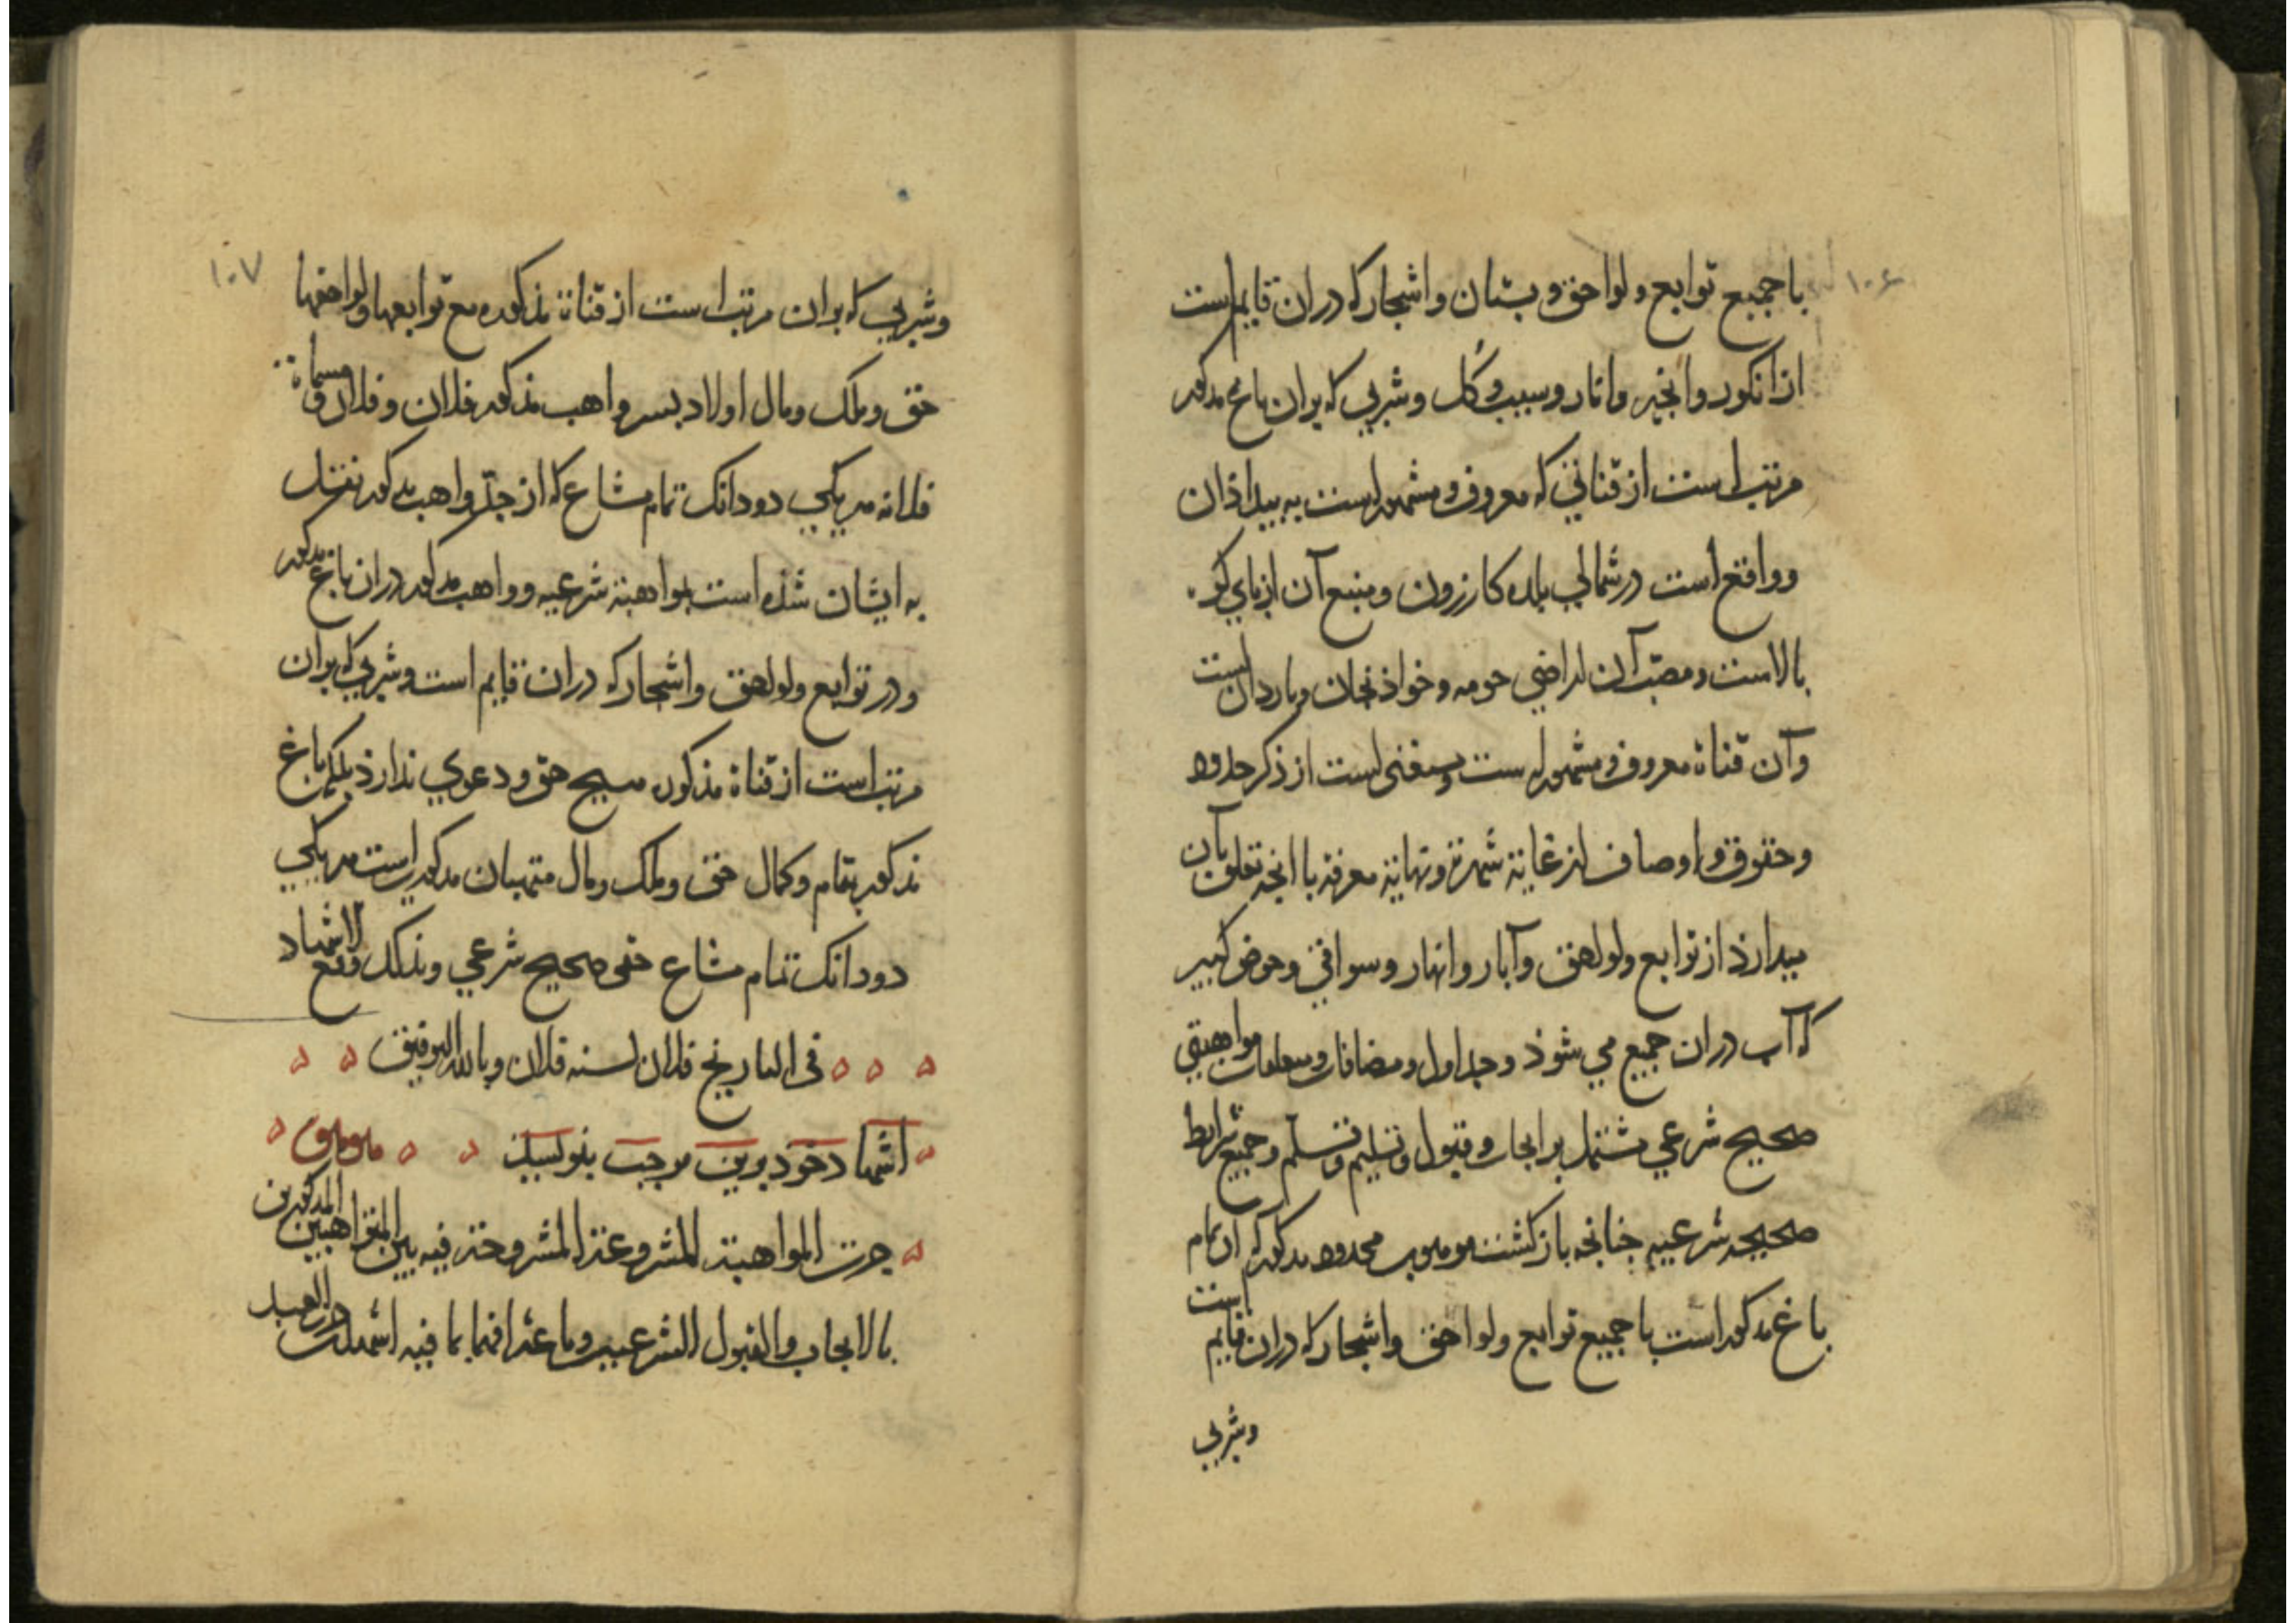 ۱۰۶
با جمیع توابع و لواحق و بستان و اشجار که دران قایم است
از انکور و انجیر و انار و سیب و کل و شربی که بران باغ مذکور
مرتب است از قناتی که معروف و مشهور است به بیدازان
و واقع است در شمالی بلده کازرون و منبع آن از پای کوه
بالاست و مصبّ آن اراضی حومه و خواذنجان و ماردان است
وآن قناة معروف و مشهور است و مستغنی است از ذکر حدود
و حقوق و اوصاف از غایة شهرة و نهایة معرفة با انجه تعلق بآن
میدارذ از توابع و لواحق و آبار و انهار و سواقی و حوض کبیر
که آب دران جمیع می شوذ و جداول و مضافات و متعلقات مواهبتی
صحیح شرعی مشتمل بر ایجاب و قبول و تسلیم و تسلّم و جمیع شرایط
صحیحه شرعیه جنانجه بازکشت موهوب محدود مذکور که آن تمام
باغ مذکور است با جمیع توابع و لواحق و اشجار که دران قایم است
وشربی
۱۰۷
وشربی که بران مرتب است از قناة مذکوره مع توابعها ولواحقها
حق و ملک و مال اولاد بسر واهب مذکور فلان و فلان و مسماة
فلانه هر یکی دو دانک تمام مشاع که از جدّ واهب مذکور منتقل
به ایشان شذه است بمواهبة شرعیه و واهب مذکور دران باغ مذکور
و در توابع و لواحق و اشجار که دران قایم است و شربی که بران
مرتب است از قناة مذکوره هیج حق و دعوی ندارذ بلکه باغ
مذکور بتمام و کمال حق و ملک و مال متهبان مذکور است هر یکی
دو دانک تمام مشاع حقی صحیح شرعی وبذلک وقع الاشهاد
فی التاریخ فلان لسنه فلان وبالله التوفیق
اشهاد خود برین موجب بنویسد
جرت المواهبة المشروعة المشروحة فیه بین المتواهبین المذکورین
بالایجاب والقبول الشرعیین وباعترافهما بما فیه اشهدت وانا العبد